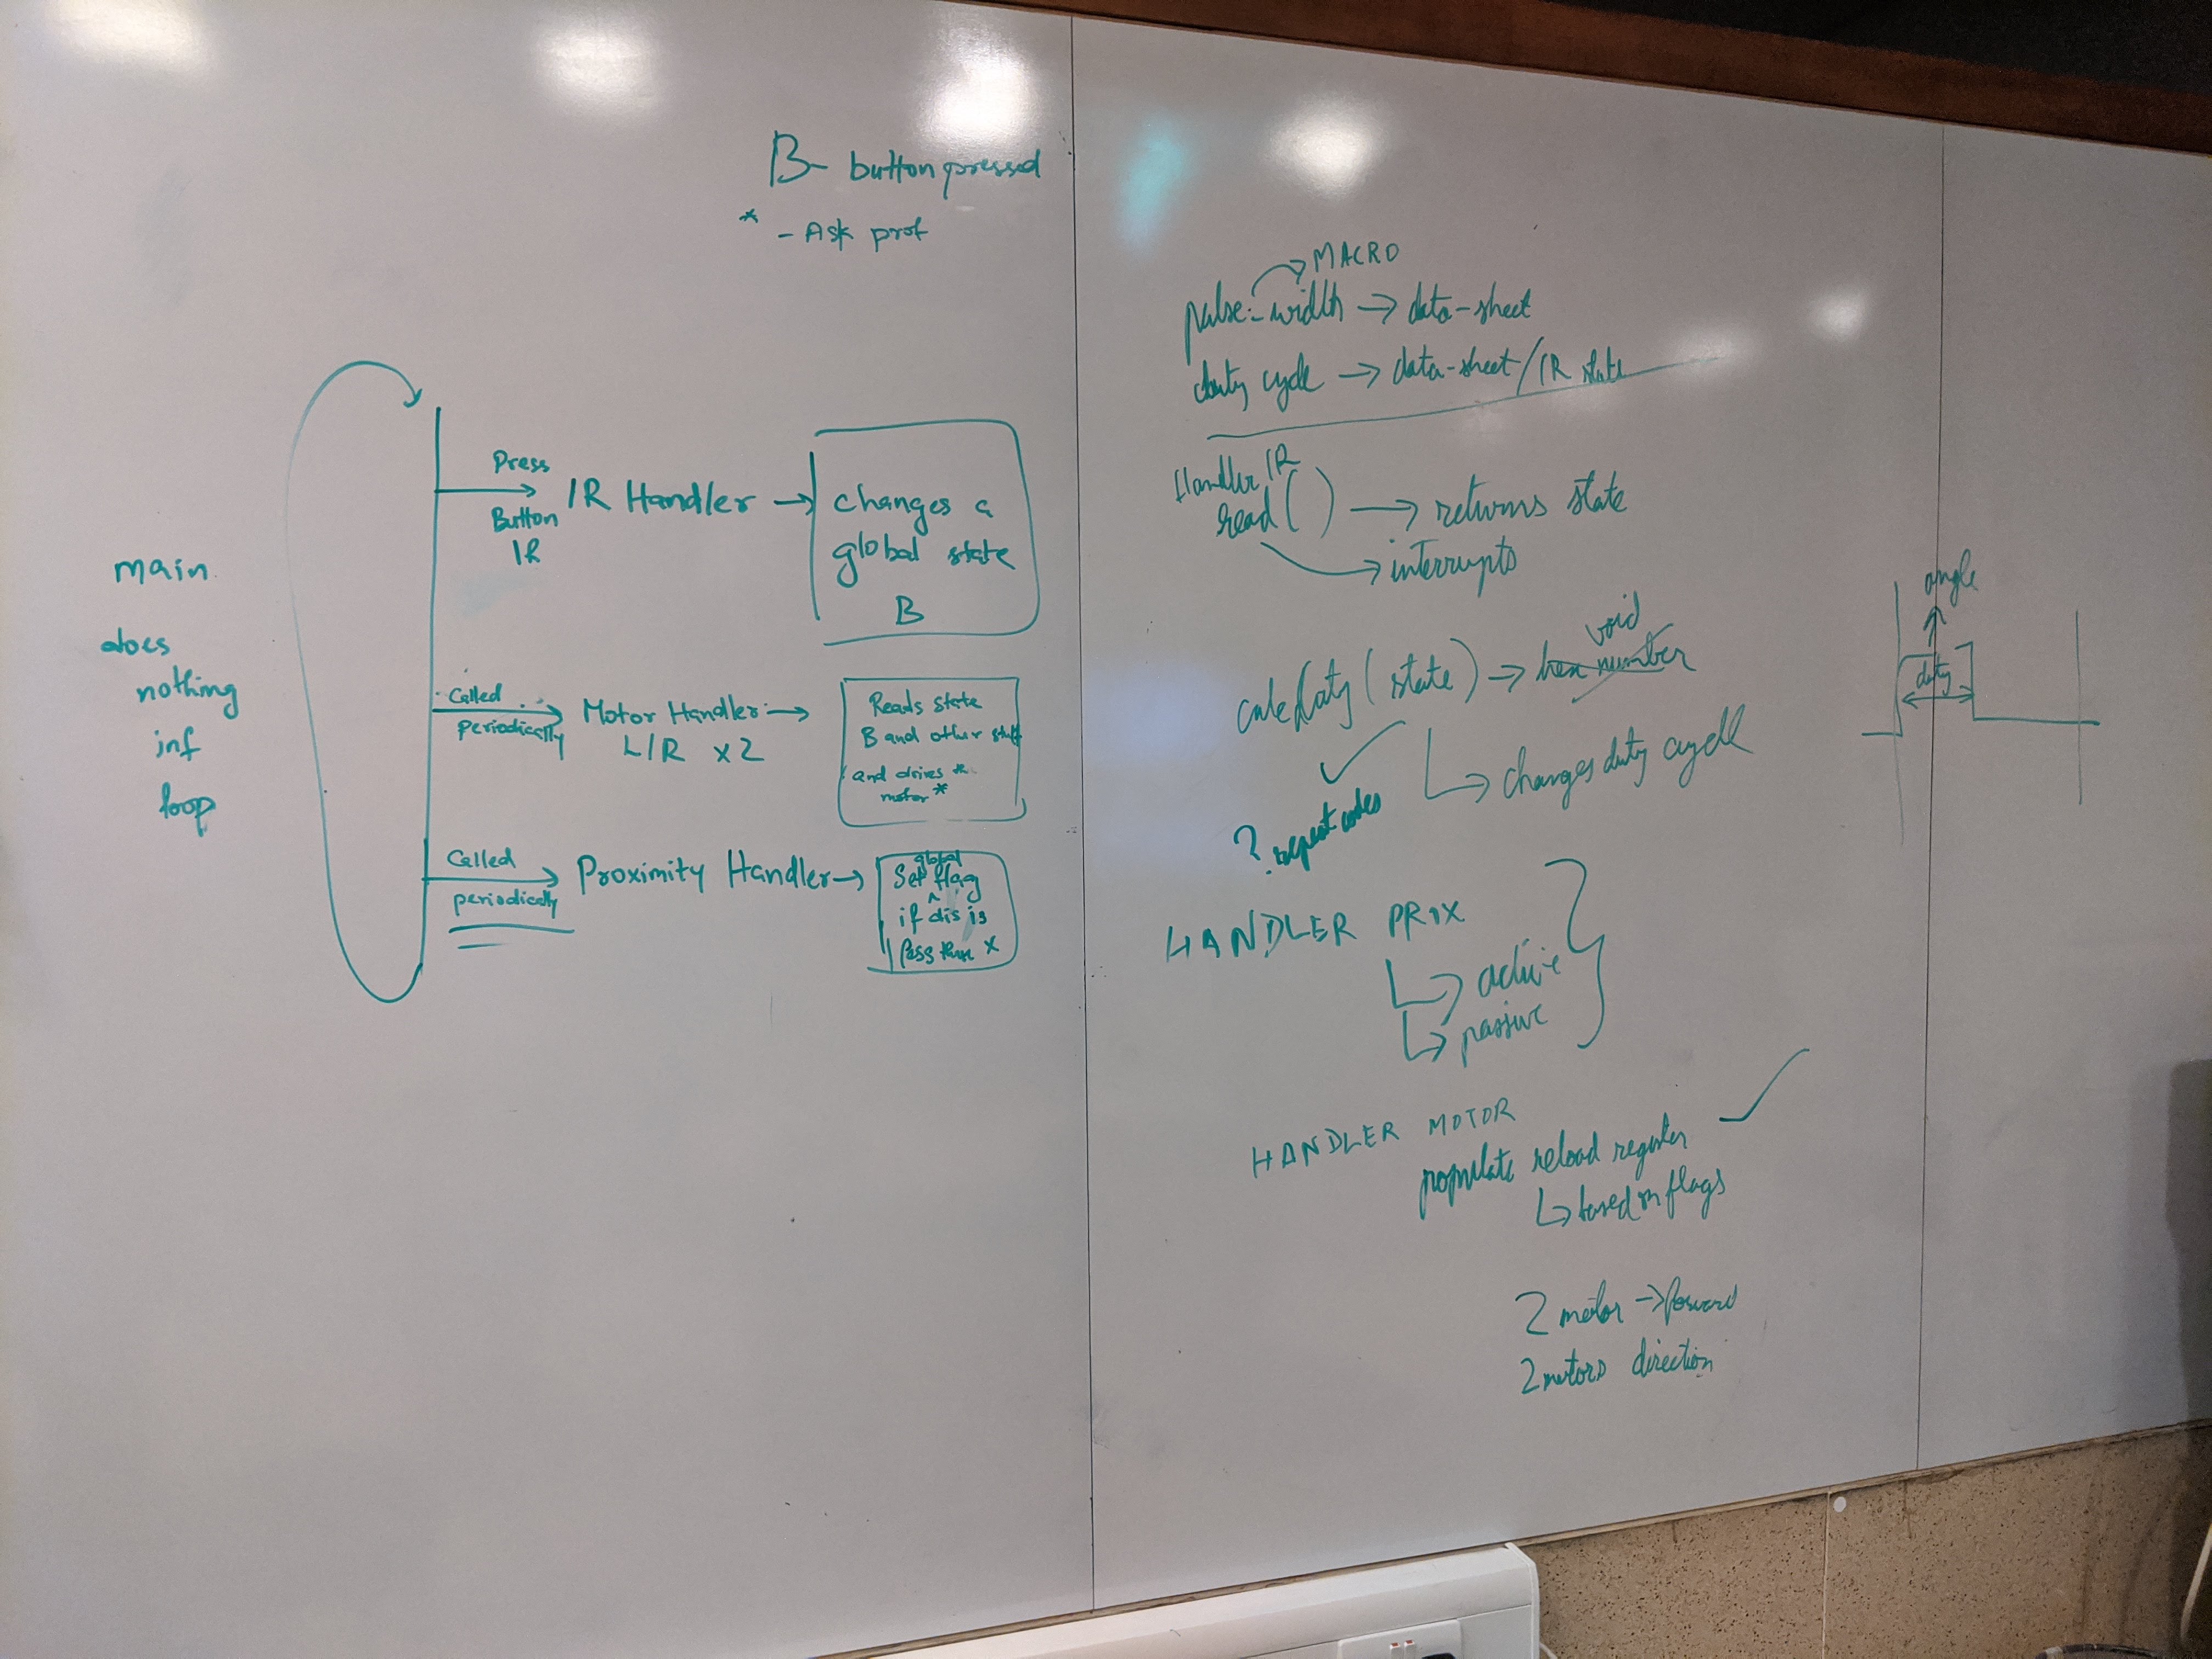 B - button pressed
* - Ask prof
main
does
nothing
inf
loop
Press
Button
IR
IR Handler →
changes a
global state
B
Called
periodically
Motor Handler →
L/R x2
Reads state
B and other stuff
and drives the
motor *
Called
periodically
Proximity Handler →
global
Set ^ flag
if dis is
less than x
MACRO
pulse-width → data-sheet
duty cycle → data-sheet/IR state
Handler IR
read( ) → returns state
→ interrupts
void
calc duty(state) → hex number
→ changes duty cycle
? repeat codes
HANDLER PROX
→ active
→ passive
HANDLER MOTOR
populate reload register
→ based on flags
2 motor → forward
2 motors direction
angle
duty